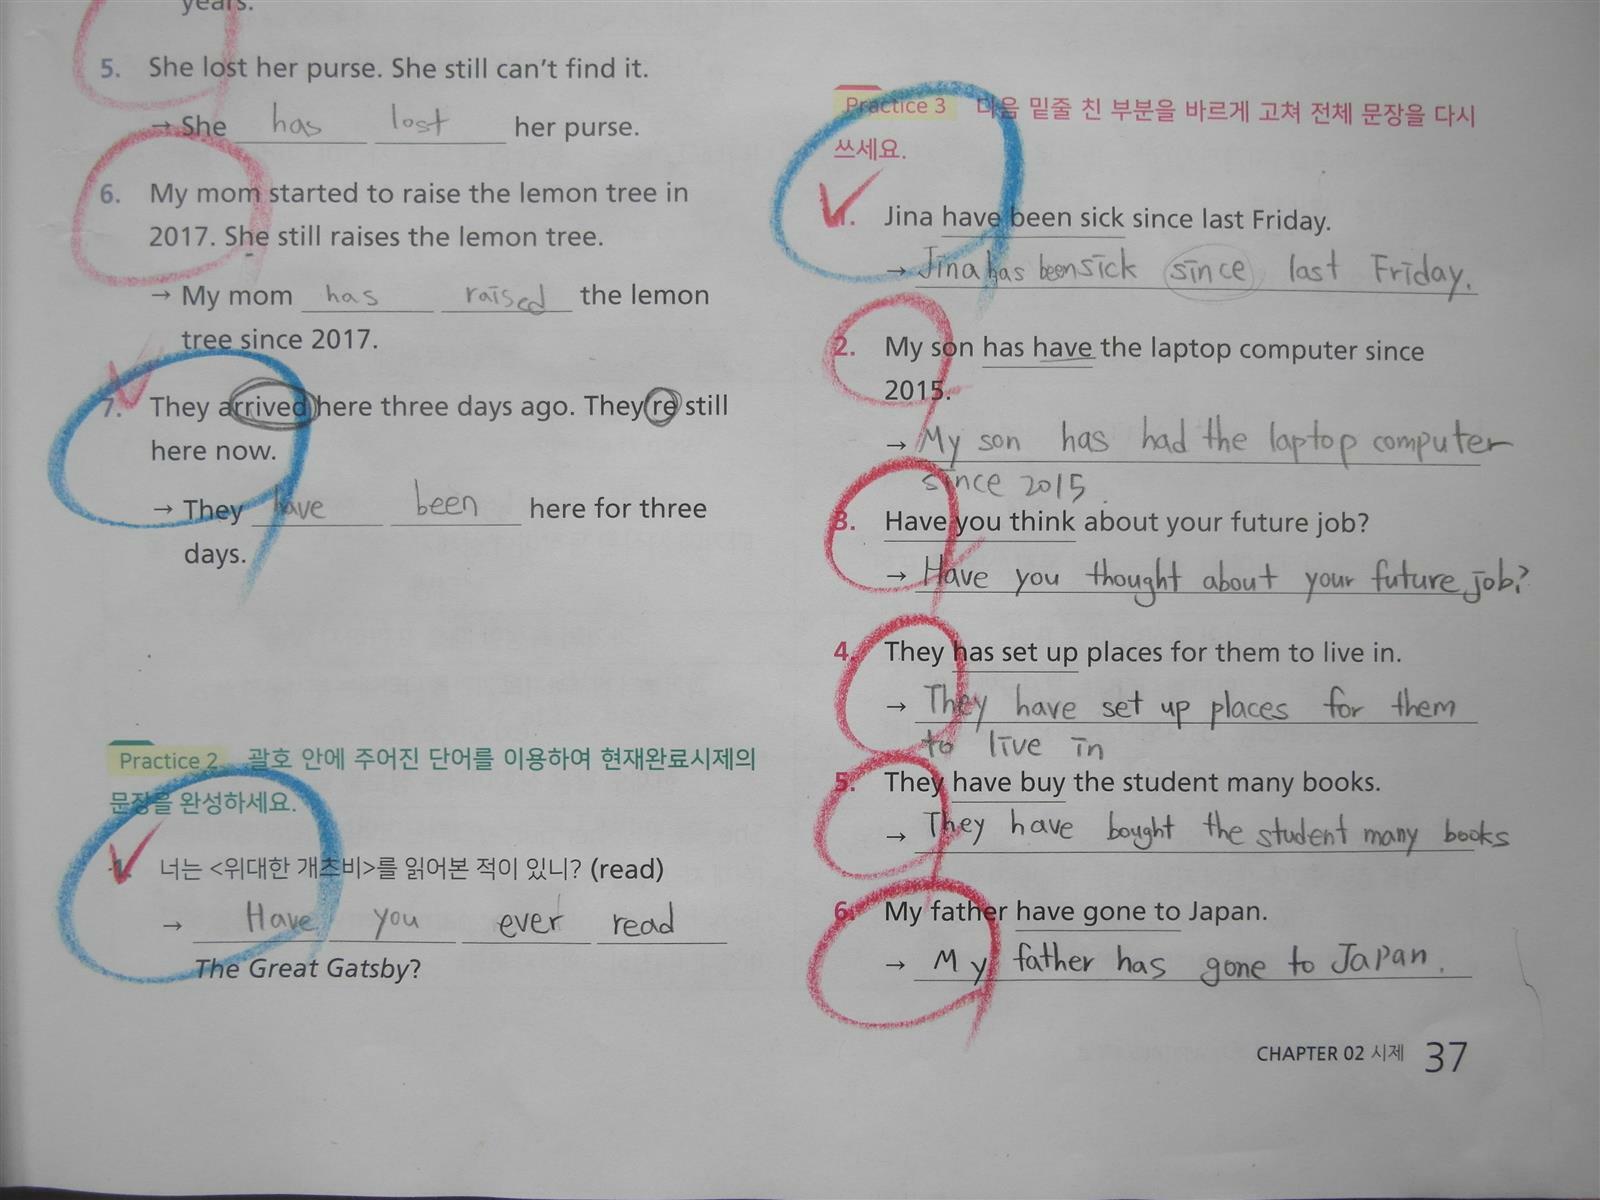 years.
5. She lost her purse. She still can't find it.
→ She has lost her purse.
6. My mom started to raise the lemon tree in
2017. She still raises the lemon tree.
→ My mom has raised the lemon
tree since 2017.
7. They arrived here three days ago. They're still
here now.
→ They have been here for three
days.
Practice 2 괄호 안에 주어진 단어를 이용하여 현재완료시제의
문장을 완성하세요.
1. 너는 <위대한 개츠비>를 읽어본 적이 있니? (read)
→ Have you ever read
The Great Gatsby?
Practice 3 다음 밑줄 친 부분을 바르게 고쳐 전체 문장을 다시
쓰세요.
1. Jina have been sick since last Friday.
→ Jina has been sick since last Friday.
2. My son has have the laptop computer since
2015.
→ My son has had the laptop computer
since 2015.
3. Have you think about your future job?
→ Have you thought about your future job?
4. They has set up places for them to live in.
→ They have set up places for them
to live in
5. They have buy the student many books.
→ They have bought the student many books
6. My father have gone to Japan.
→ My father has gone to Japan.
CHAPTER 02 시제 37